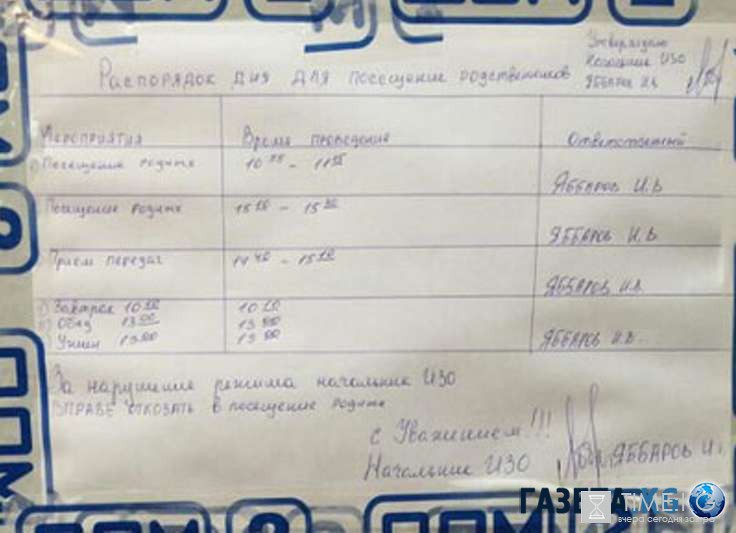 Утверждаю
Начальник ИЗО
Яббаров И.В
Распорядок дня для посещение родственников
Мероприятия Время проведения Ответственный
Посещение родитя 11 Яббаров И.В
Посещение родитя 15 00 – 15 30 Яббаров И.В
Прием передач 14 40 – 15 00 Яббаров И.В.
Завтрак 10 00 10 00
Обед 13 00 13 00
Ужин 19 00 19 00 Яббаров И.В.
За нарушение режима начальник ИЗО
ВПРАВЕ отказать в посещение родитя
с Уважением!!!
Начальник ИЗО Яббаров И.
ГАЗЕТА.
TIME.
вчера сегодня завтра